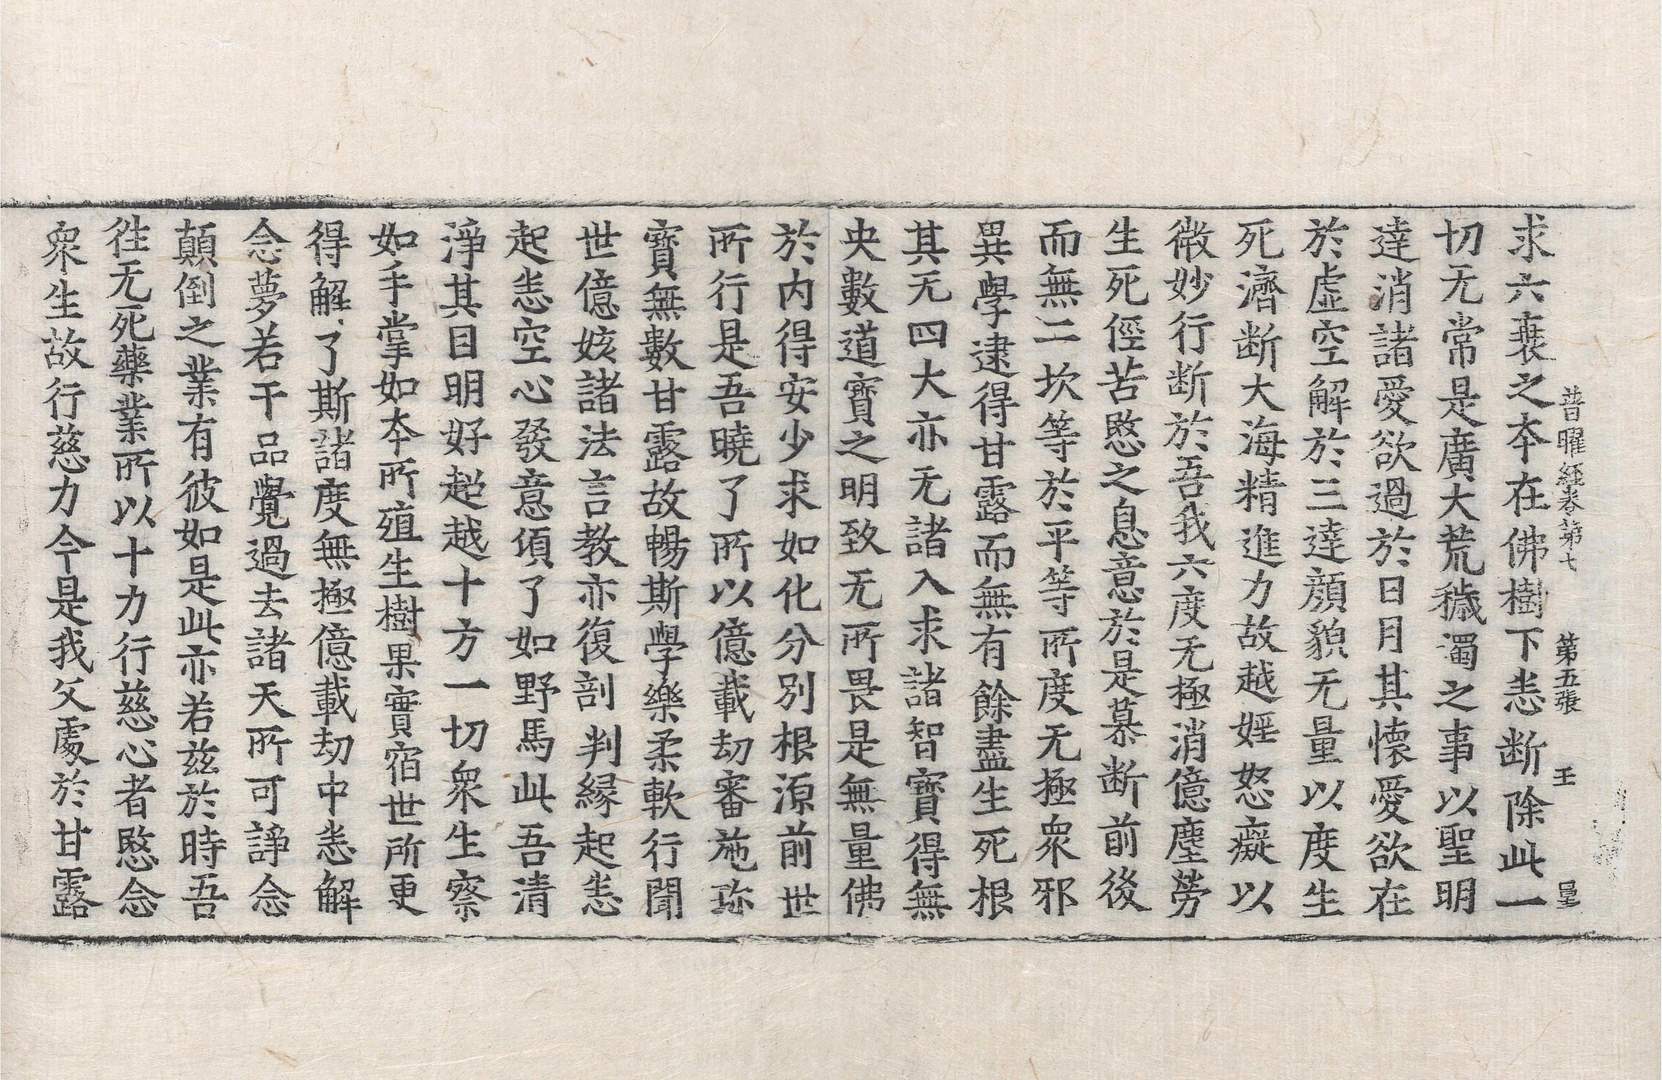 普曜経卷第七 第五張 王 量
求六衰之本在佛樹下悉断除此一
切无常是廣大荒穢濁之事以聖明
達消諸愛欲過於日月其懷愛欲在
於虛空解於三達顔貌无量以度生
死濟断大海精進力故越婬怒癡以
微妙行断於吾我六度无極消億塵勞
生死俓苦愍之息意於是慕断前後
而無二坎等於平等所度无極衆邪
異學逮得甘露而無有餘盡生死根
其无四大亦无諸入求諸智寶得無
央數道寶之明致无所畏是無量佛
於内得安少求如化分別根源前世
所行是吾曉了所以億載劫審施珎
寶無數甘露故暢斯學樂柔軟行聞
世億姟諸法言教亦復剖判緣起悉
起悉空心發意須了如野馬此吾清
淨其目明好超越十方一切衆生察
如手掌如本所殖生樹果實宿世所更
得解了斯諸度無極億載劫中悉解
念夢若干品覺過去諸天所可諍念
顛倒之業有彼如是此亦若兹於時吾
往无死藥業所以十力行慈心者愍念
衆生故行慈力今是我父處於甘露